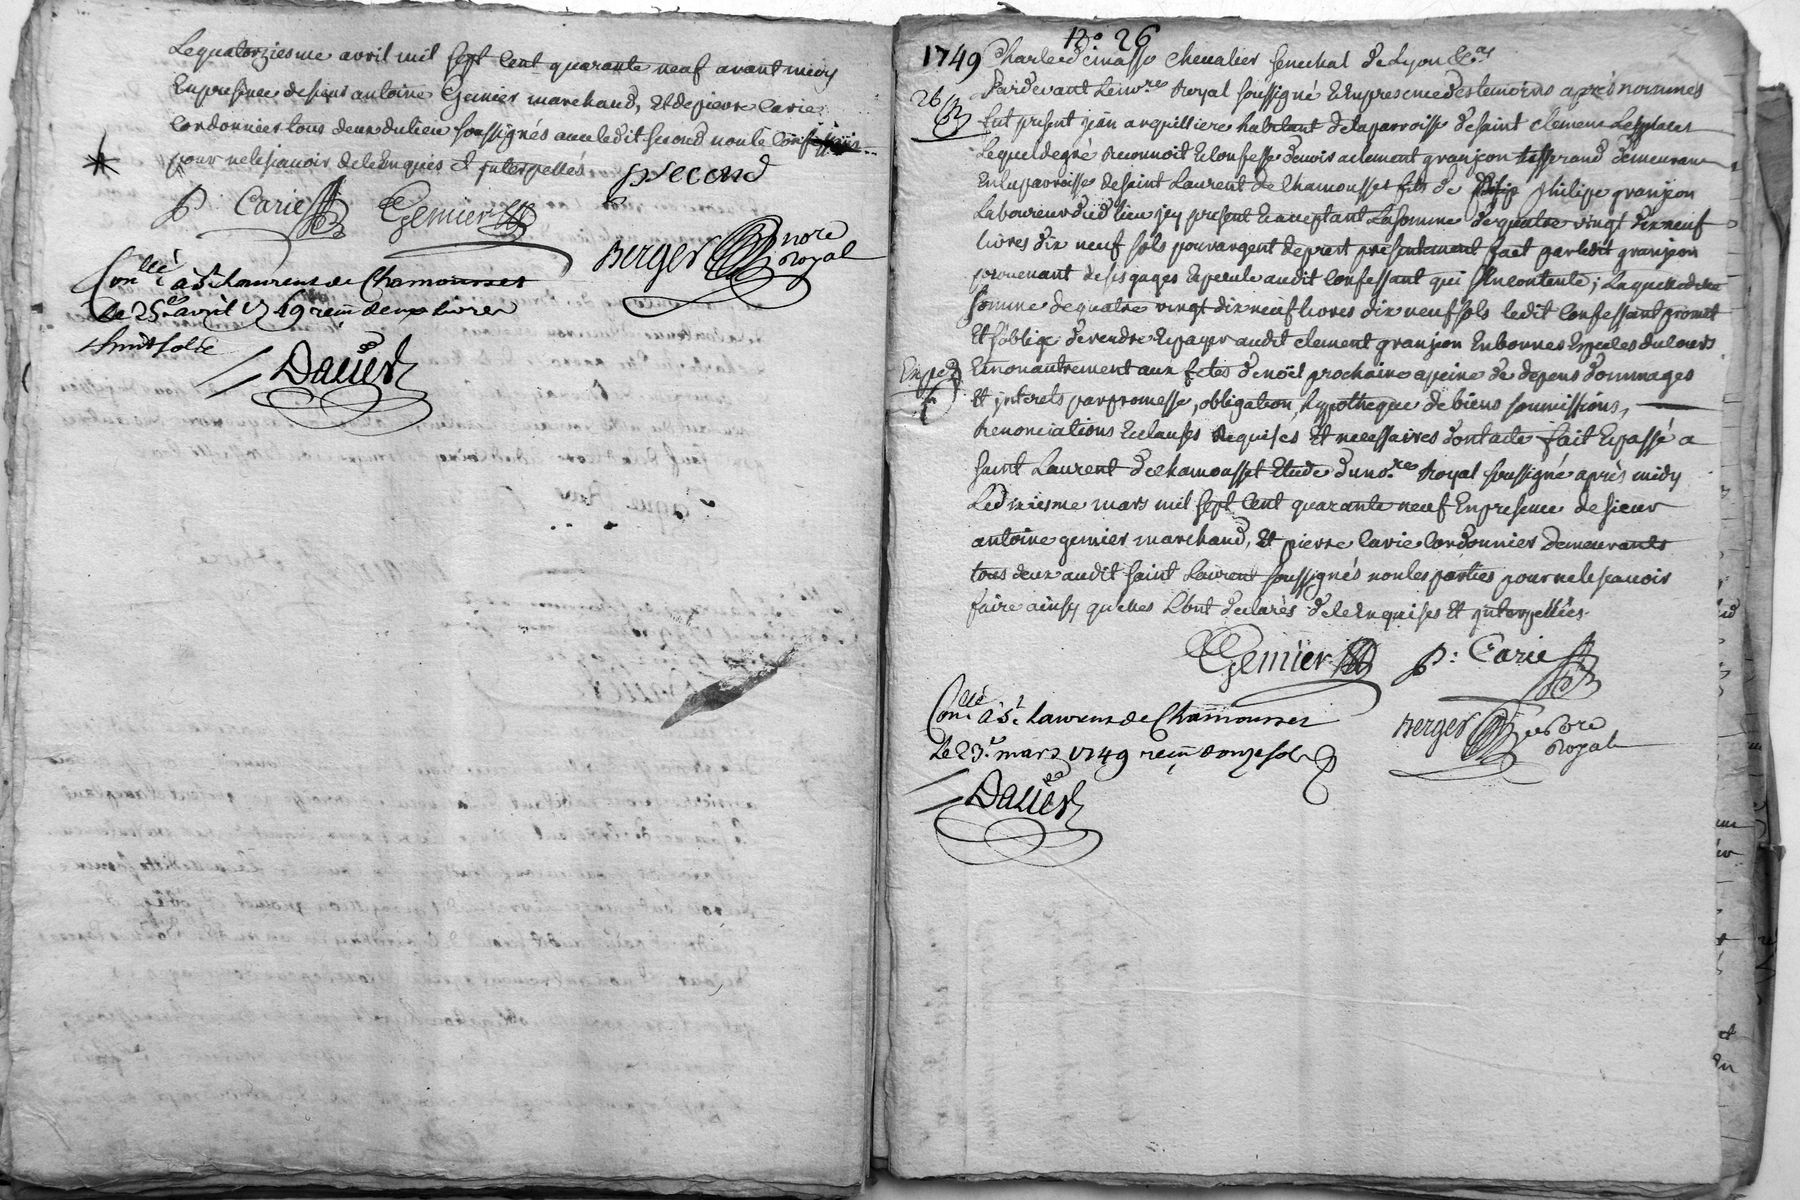 Le quatorziesme avril mil sept cent quarante neuf avant midy
En presence de sieurs antoine Gemier marchand, Et de pierre Carie
Cordonnier tous deux dudit lieu soussignés avec ledit second non le Confessant
pour ne le scavoir de ce Enquis Et interpellés
psecond
P Carie Gemier
Berger no.re Royal
Con.llé a St Laurens de Chamousset
Le 25.e avril 1749 reçu deux livres
huit sols
Dauier
N.o 26
1749 Charles de masso Chevalier senechal de Lyon &.a
26 Pardevant Le no.re Royal soussigné Et En presence des temoins après nommés
fut present jean arquilliere habitant de la parroisse de saint Clement Les places
Lequel de gré Reconnoit Et Confesse devoir a Clement granjon tisserand demeurant
En la parroisse de saint Laurent de Chamousset fils de philipe granjon
Laboureur dudit lieu jcy present Et acceptant La somme de quatre vingt dix neuf
livres dix neuf sols pour argent de prest presentement fait par ledit granjon
provenant de ses gages Et pecule audit Confessant qui s'En contente; Laquelle ditte
somme de quatre vingt dix neuf livres dix neuf sols ledit Confessant promet
Et s'oblige de rendre Et payer audit Clement granjon En bonnes Especes du Cours
Exped Et non autrement aux fetes de noël prochaine a peine de depens dommages
Et jnterets par promesse, obligation, hypotheque de biens soumissions,
Renonciations Et clauses Requises Et necessaires dont acte fait Et passé a
saint Laurent de Chamousset Etude du no.re Royal soussigné après midy
Le dixiesme mars mil sept Cent quarante neuf En presence de sieur
antoine gemier marchand, Et pierre Carie Cordonnier demeurants
tous deux audit saint Laurent soussignés non les parties pour ne le scavoir
faire ainsy qu'elles L'ont declarés de ce Enquises Et jnterpellées.
Gemier P: Carie
Berger no.re Royal
Con.llé a St. Laurens de Chamousset
Le 23.e mars 1749 reçu douze sols
Dauier